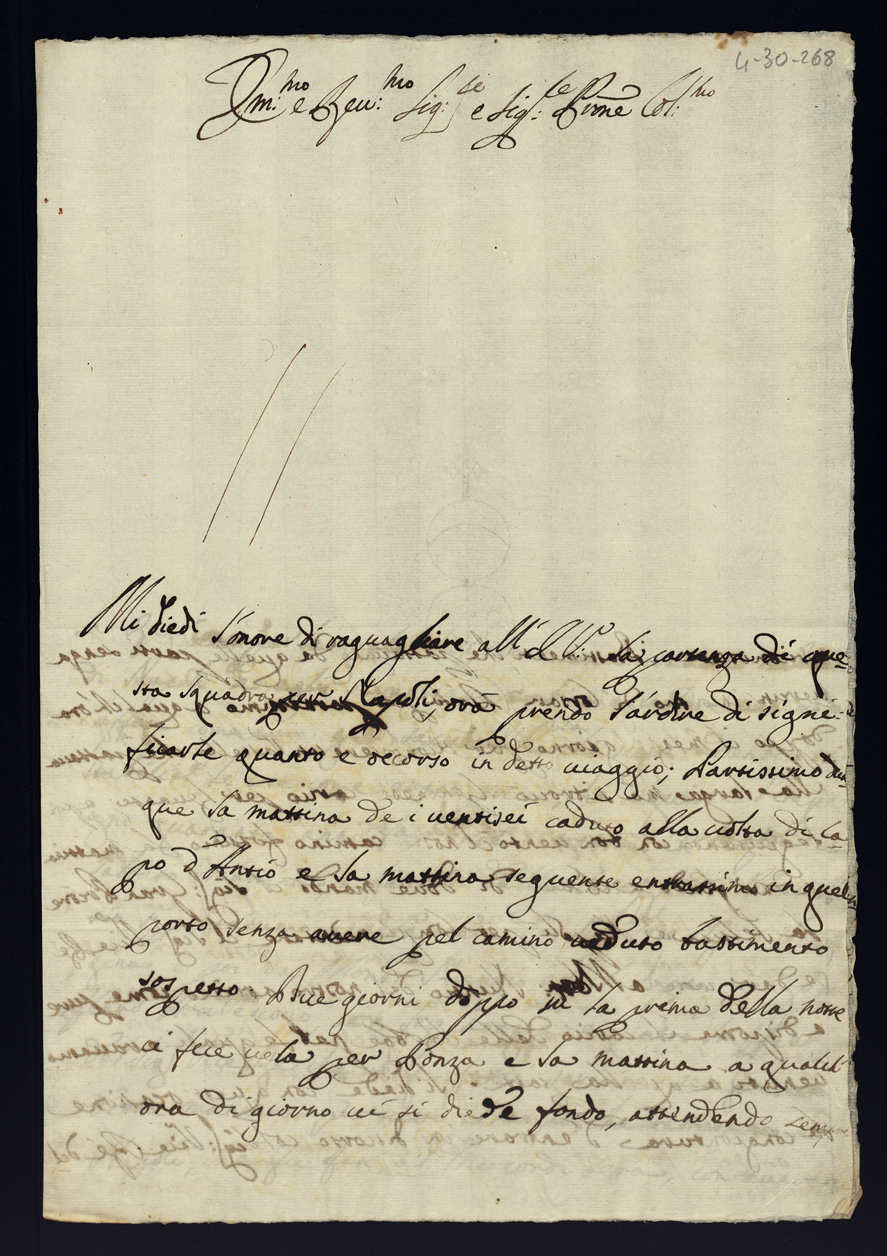 4-30-268
Em:mo e Reu:mo Sig:re e Sig:re Prōne Col:mo
Mi diedi l'onore di raguagliare all' E. V: la partenza di que-
sta squadra per Napoli, ora prendo l'ardire di signi-
ficarle quanto e occorso in detto uiaggio; Partissimo dū-
que la mattina de i uentisei caduto alla uolta di Ca-
po d'Antio e la mattina seguente entrassimo in quel
porto senza auere pel camino ueduto bastimento
sospetto. Due giorni doppo la prima della notte
si fece uela per Ponza e la mattina a qualch'
ora di giorno ui si diede fondo, attendendo